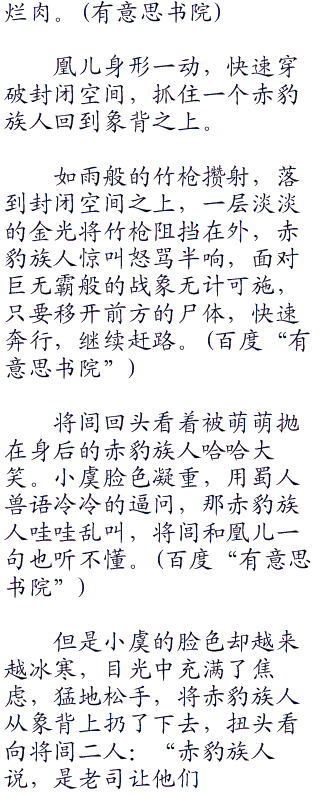 烂肉。(有意思书院)
凰儿身形一动，快速穿
破封闭空间，抓住一个赤豹
族人回到象背之上。
如雨般的竹枪攒射，落
到封闭空间之上，一层淡淡
的金光将竹枪阻挡在外，赤
豹族人惊叫怒骂半响，面对
巨无霸般的战象无计可施，
只要移开前方的尸体，快速
奔行，继续赶路。(百度“有
意思书院”)
将闾回头看着被萌萌抛
在身后的赤豹族人哈哈大
笑。小虞脸色凝重，用蜀人
兽语冷冷的逼问，那赤豹族
人哇哇乱叫，将闾和凰儿一
句也听不懂。(百度“有意思
书院”)
但是小虞的脸色却越来
越冰寒，目光中充满了焦
虑，猛地松手，将赤豹族人
从象背上扔了下去，扭头看
向将闾二人：“赤豹族人
说，是老司让他们